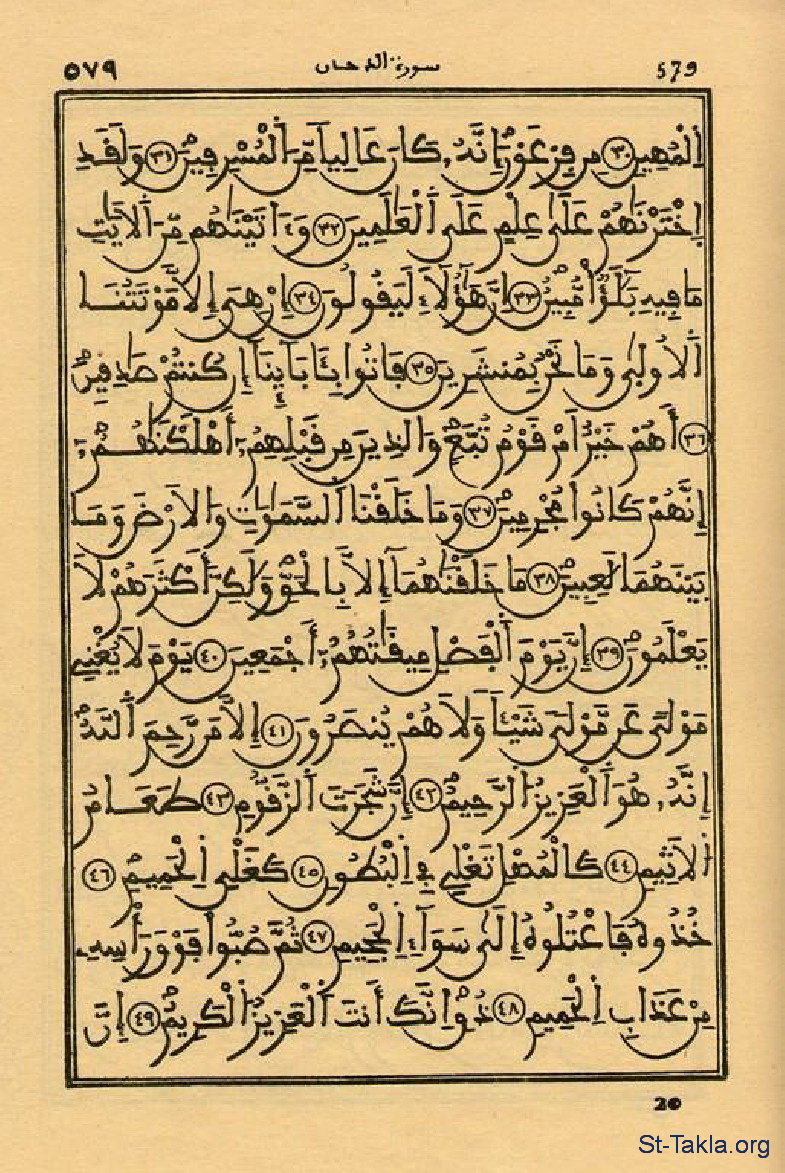 ٥٧٩ سورة الدخان 579
اِ۬لْمُهِينِ ٣٠ مِن فِرْعَوْنَۖ إِنَّهُۥ كَانَ عَالِياٗ مِّنَ اَ۬لْمُسْرِفِينَۖ ٣١ وَلَقَدِ
اِ۪خْتَرْنَٰهُمْ عَلَىٰ عِلْمٍ عَلَى اَ۬لْعَٰلَمِينَ ٣٢ وَءَاتَيْنَٰهُم مِّنَ اَ۬لْأيَٰتِ
مَا فِيهِ بَلَٰٓؤٌاْ مُّبِينٌۖ ٣٣ إِنَّ هَٰٓؤُلَآءِ لَيَقُولُونَ ٣٤ إِنْ هِيَ إِلَّا مَوْتَتُنَا
اَ۬لُاولَىٰ وَمَا نَحْنُ بِمُنشَرِينَ ٣٥ فَاتُواْ بِـَٔابَآئِنَآ إِن كُنتُمْ صَٰدِقِينَۖ
٣٦ أَهُمْ خَيْرٌ اَمْ قَوْمُ تُبَّعٖ وَالذِينَ مِن قَبْلِهِمُۥٓ أَهْلَكْنَٰهُمُۥٓ
إِنَّهُمْ كَانُواْ مُجْرِمِينَۖ ٣٧ وَمَا خَلَقْنَا اَ۬لسَّمَٰوَٰتِ وَالَارْضَ وَمَا
بَيْنَهُمَا لَٰعِبِينَۖ ٣٨ مَا خَلَقْنَٰهُمَآ إِلَّا بِالْحَقِّۖ وَلَٰكِنَّ أَكْثَرَهُمْ لَا
يَعْلَمُونَۖ ٣٩ إِنَّ يَوْمَ اَ۬لْفَصْلِ مِيقَٰتُهُمُۥٓ أَجْمَعِينَ ٤٠ يَوْمَ لَا يُغْنِے
مَوْلىً عَن مَّوْلىٗ شَيْـٔاٗ وَلَا هُمْ يُنصَرُونَ ٤١ إِلَّا مَن رَّحِمَ اَ۬للَّهُۖ
إِنَّهُۥ هُوَ اَ۬لْعَزِيزُ اُ۬لرَّحِيمُۖ ٤٢ إِنَّ شَجَرَتَ اَ۬لزَّقُّومِ ٤٣ طَعَامُ
اُ۬لَاثِيمِ ٤٤ كَالْمُهْلِ تَغْلِے فِے اِ۬لْبُطُونِ ٤٥ كَغَلْيِ اِ۬لْحَمِيمِۖ ٤٦
خُذُوهُ فَاعْتُلُوهُ إِلَىٰ سَوَآءِ اِ۬لْجَحِيمِ ٤٧ ثُمَّ صُبُّواْ فَوْقَ رَأْسِهِۦ
مِنْ عَذَابِ اِ۬لْحَمِيمِ ٤٨ ذُقِۖ اِنَّكَ أَنتَ اَ۬لْعَزِيزُ اُ۬لْكَرِيمُۖ ٤٩ إِنَّ
20
St-Takla.org